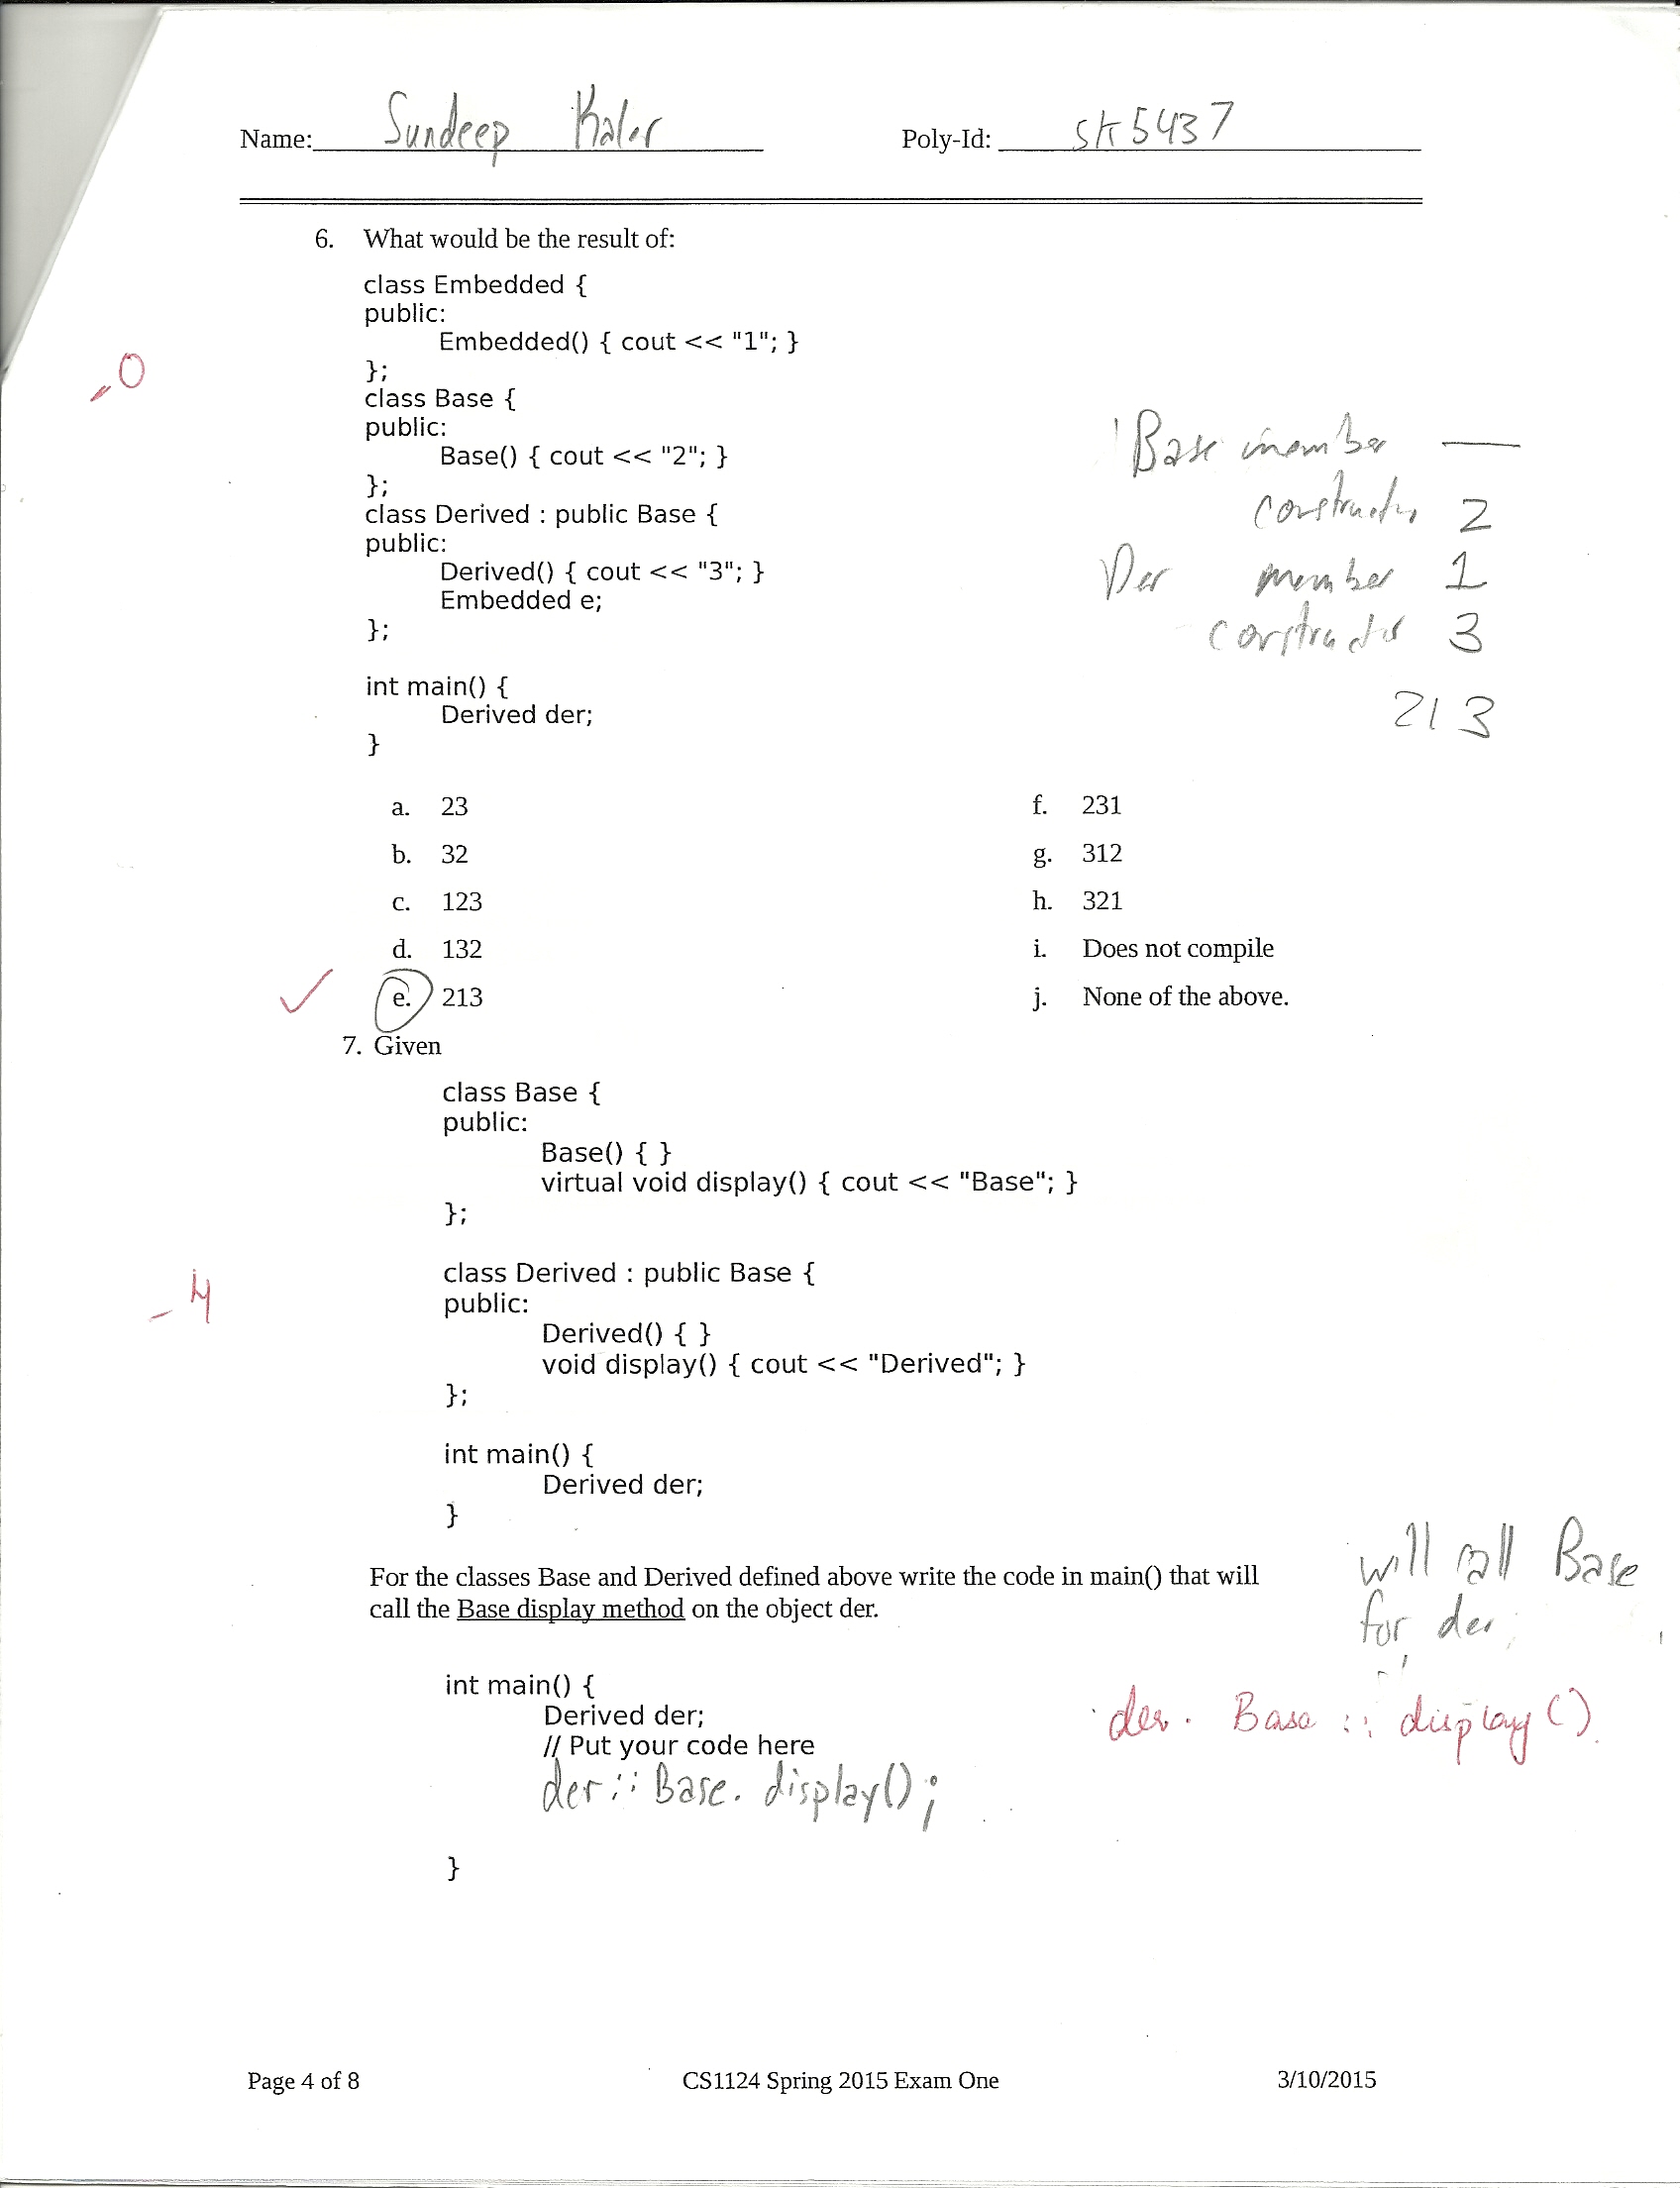 Name: Sundeep Kaler Poly-Id: sk5437
6. What would be the result of:
class Embedded {
public:
Embedded() { cout << "1"; }
};
-0
class Base {
public:
Base() { cout << "2"; }
};
class Derived : public Base {
public:
Derived() { cout << "3"; }
Embedded e;
};
int main() {
Derived der;
}
Base member —
constructor 2
Der member 1
constructor 3
213
a. 23
b. 32
c. 123
d. 132
✓ e. 213
f. 231
g. 312
h. 321
i. Does not compile
j. None of the above.
7. Given
class Base {
public:
Base() { }
virtual void display() { cout << "Base"; }
};
class Derived : public Base {
public:
-4
Derived() { }
void display() { cout << "Derived"; }
};
int main() {
Derived der;
}
For the classes Base and Derived defined above write the code in main() that will
call the Base display method on the object der.
will call Base
for der
int main() {
Derived der;
// Put your code here
der::Base.display();
}
der. Base :: display()
Page 4 of 8 CS1124 Spring 2015 Exam One 3/10/2015